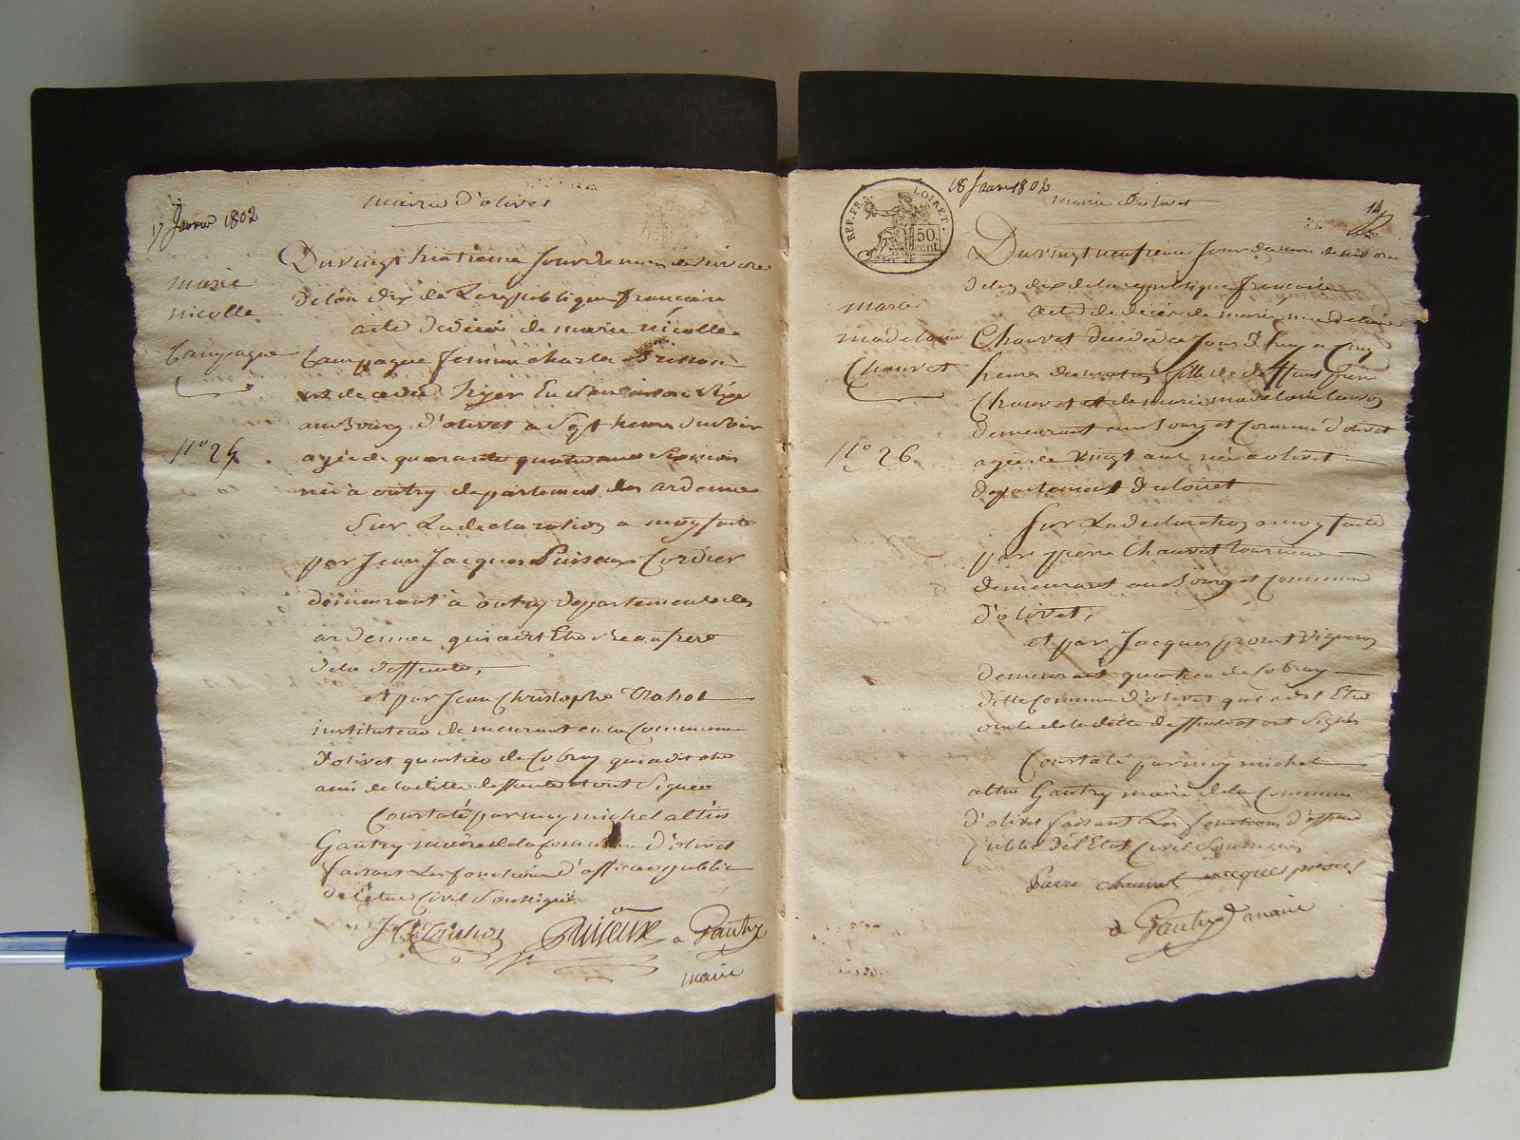 17 Janvier 1802
mairie d'olivet
Du vingt huitieme jour du mois de nivose
marie
nicolle
Campagne
n.° 25
de lan dix de La republique francaise
acte de décès de marie nicolle
Campagne femme charle
decedée hyer
au Bourg d'olivet a sept heures du soir
agée de quarante quatre ans
née à autry departement des ardennes
Sur La declaration a moy faite
par Jean Jacques Puiseux Cordier
demeurant à autry departement des
ardennes qui a dit Etre Beaufrere
dela deffunte,
et par Jean Christophe
instituteur demeurant en la Commune
d'olivet quartier de Cobray qui a dit etre
ami de laditte deffunte et ont Signés
Constaté par moy michel altin
Gautry maire de la Commune d'olivet
faisant Les fonctions d'officier public
de l'etat Civil Soussigné
Puiseux a Gautry
maire
REP. FRA. LOIRET.
50 cent.
18 Janv 1802
mairie d'olivet
Du vingt neufieme jour du mois de nivose
marie
madelaine
Chauvet
n.° 26
de lan dix de la republique francaise
acte de décès de marie madelaine
Chauvet decedée ce Jour d'huy a Cinq
heures du matin fille de deffunt
Chauvet et de marie madelaine
demeurant au Bourg et Commune d'olivet
agée de vingt ans née a olivet
departement du loiret
Sur La declaration a moy faite
par pierre Chauvet tourneur
demeurant au Bourg et Commune
d'olivet,
et par Jacques proust vigneron
demeurant quartier de Cobray
ditte Commune d'olivet qui a dit Etre
oncle de la ditte deffunte et ont Signés
Constaté par moy michel
altin Gautry maire de la Commune
d'olivet faisant Les fonctions d'officier
public de l'Etat Civil Soussigné
Pierre chauvet Jacques prout
a Gautry maire